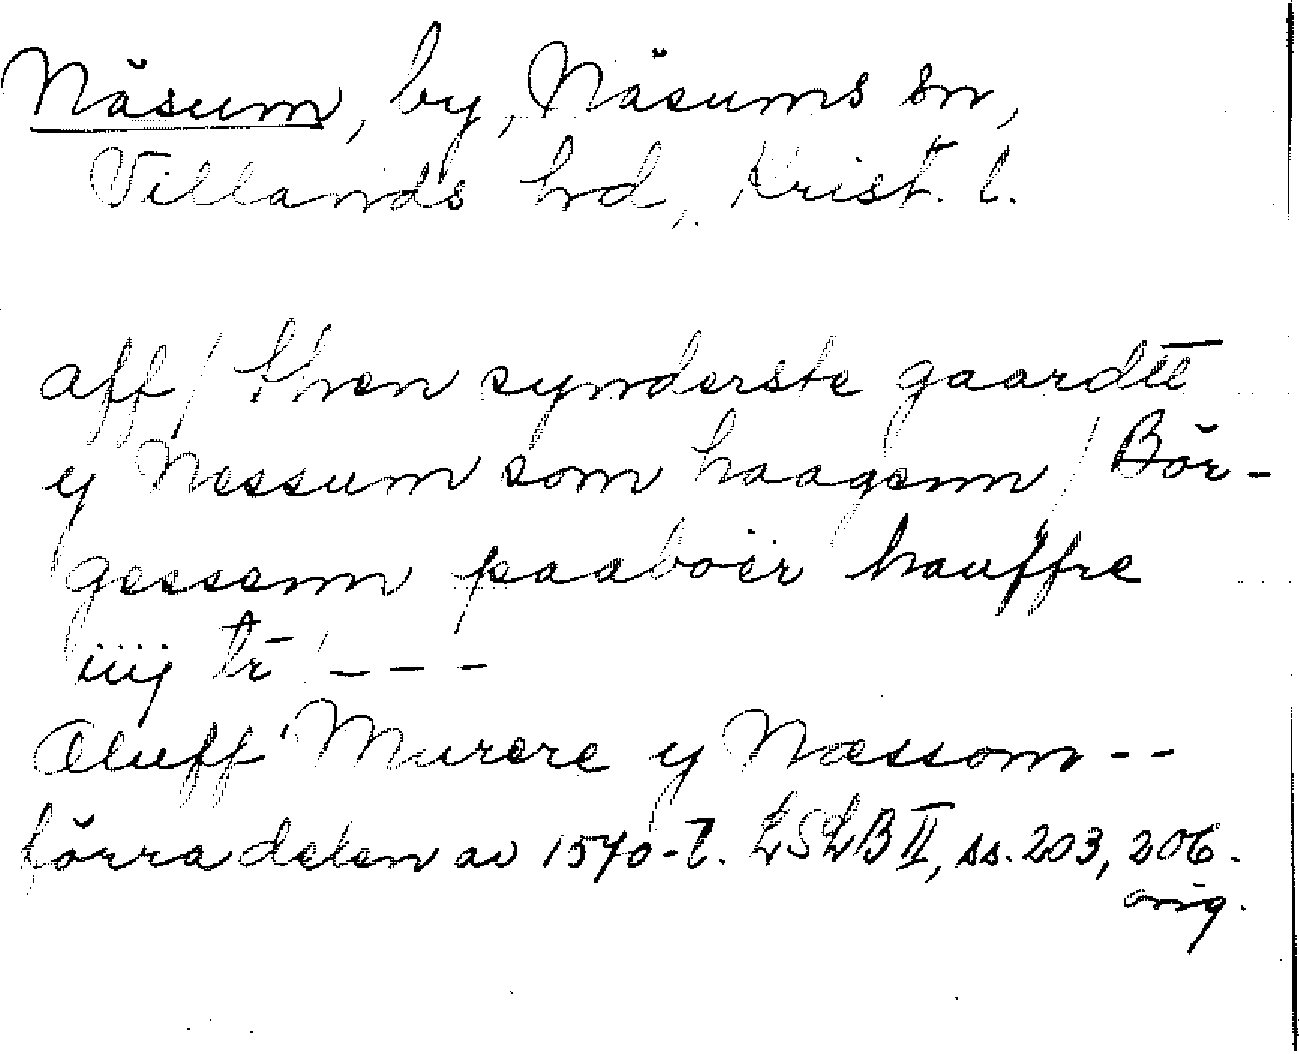 Näsum, by, Näsums sn,
Villands hd, Krist. l.
aff / then synderste gaardtt
y Nessum som haagenn / Bör-
gessenn paaboër hauffre
iiij tr̄ / - - -
Oluff Murere y Næssom - -
förra delen av 1570-t. LSLB II, ss. 203, 206.
orig.